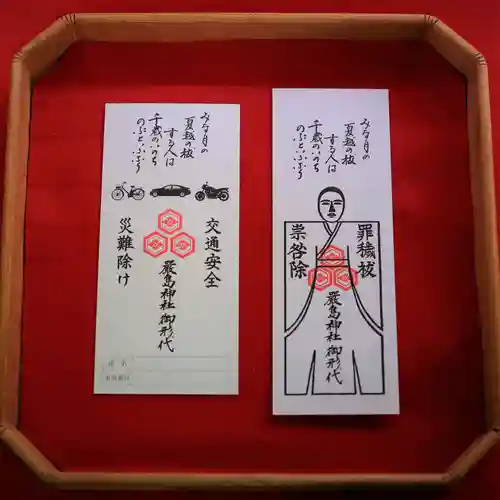 みな月の
夏越の祓
する人は
千歳のいのち
のぶといふなり
交通安全
災難除け
嚴島神社 御形代
みな月の
夏越の祓
する人は
千歳のいのち
のぶといふなり
罪穢祓
祟咎除
嚴島神社 御形代